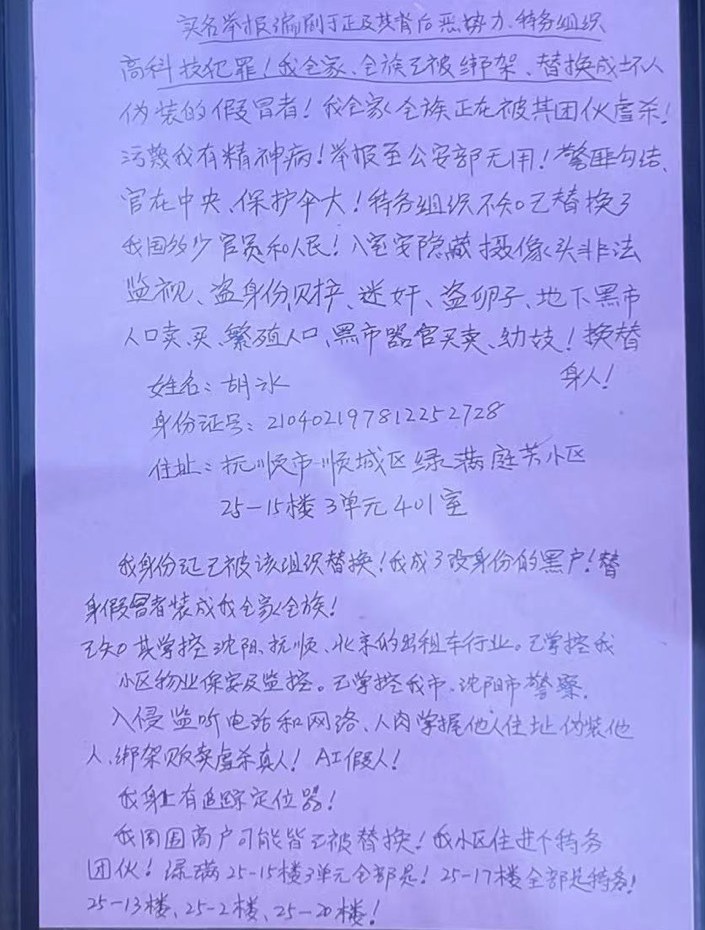 实名举报编剧于正及其背后恶势力、特务组织
高科技犯罪！我全家、全族已被绑架、替换成坏人
伪装的假冒者！我全家全族正在被其团伙虐杀！
污蔑我有精神病！举报至公安部无用！警匪勾结、
官在中央、保护伞大！特务组织不知已替换了
我国多少官员和人民！入室安隐藏摄像头非法
监视、盗身份、财产、迷奸、盗卵子、地下黑市
人口卖、买、繁殖人口、黑市器官买卖、幼妓！换替
身人！
姓名：胡冰
身份证号：210402197812252728
住址：抚顺市顺城区绿满庭芳小区
25-15楼3单元401室
我身份证已被该组织替换！我成了没身份的黑户！替
身假冒者装成我全家全族！
已知其掌控沈阳、抚顺、北京的出租车行业。已掌控我
小区物业保安及监控。已掌控我市、沈阳市警察.
入侵监听电话和网络、人肉掌握他人住址伪装他
人、绑架贩卖虐杀真人！AI假人！
我身上有追踪定位器！
我周围商户可能皆已被替换！我小区住进个特务
团伙！绿满25-15楼3单元全部是！25-17楼全部是特务！
25-13楼、25-2楼、25-20楼！